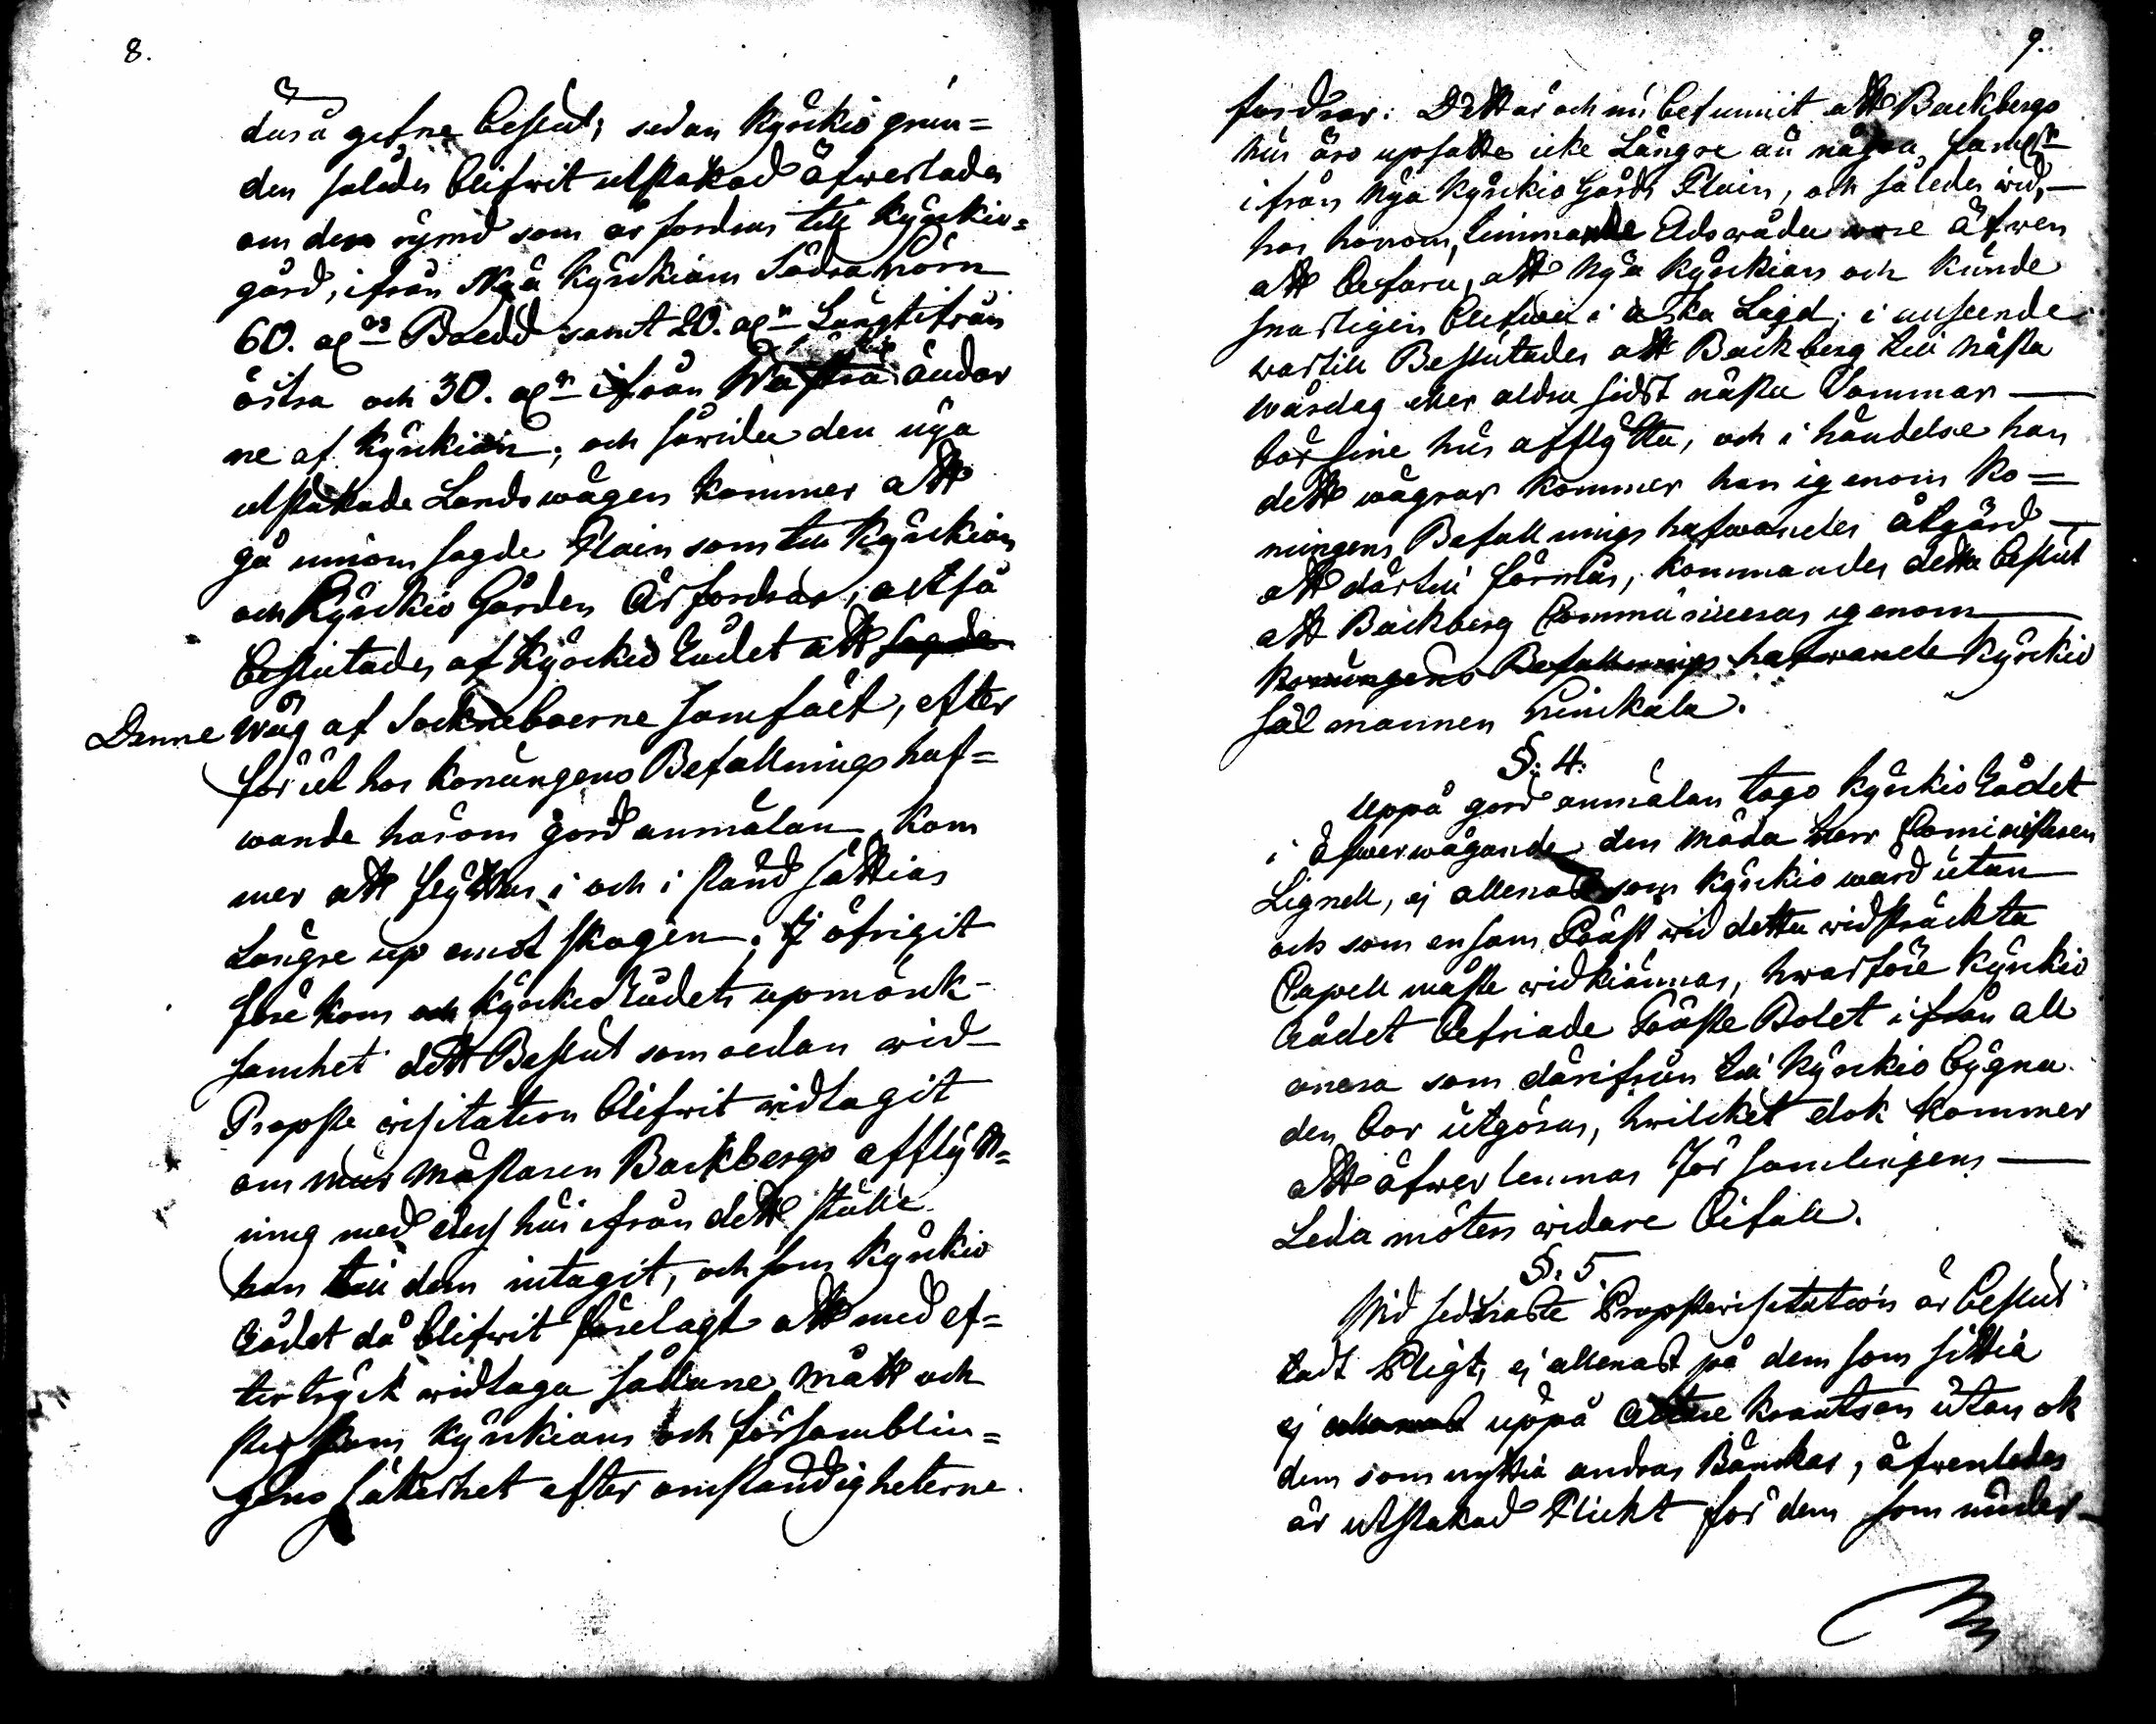 8.
däså gifne beslut; sedan Kyrkio grun=
den således blifwit utstakad öfwerlades
om den rymd som är fordras till Kyrkio=
gård, ifrån Nya Kyrkians Södra hörn
60. alnar Bredd samt 20. aln Längt ifrån
östra och 30. aln ifrån Wästra ändar
ne af Kyrkian; och såwida den nya
utstakade Landswägen kommer att
gå innom sagde Plain som till Kyrkian
och Kyrkio Gården Är fordras, altså
beslutades af Kyrckio Rådet att sagde
Denne wäg af Sockneboerne samfält, efter
förut hos Konungens Befallningshaf=
wande härom giord anmälan, kom
mer att flyttas i och i stånd sättias
Längre up emot skogen. I öfrigit
före kom och Kyrckio Rådets upmärk-
samhet dett Beslut som redan wid
Propste visitation blifwit widtagit
om mur mästaren Backbergs afflytt=
ning med dess hus ifrån dett ställe
han till dem intagit, och som Kyrkio
Rådet då blifwit förelagt att med ef=
tertryck widtaga sådane mått och
steg som Kyrkians och församblin=
gens säkerhet efter omständigheterne
9.
fordrar: Dett är och nu befunnit att Backbergs
hus äro upsatte icke Längre än några famn
ifrån Nya Kyrkio Gårds Plain, och således wid
hos honom timmande Elds wåda wore äfwen
att befara, att Nya Kyrkian och kunde
snarligen blifwa i aska Lagd; i anseende
wartill Beslutades att Backberg till nästa
wårdag eller aldra sidst nästa Sommar
bör sine hus afflytta, och i händelse han
dett wägrar kommer han igenom Ko=
nungens Befallningshafwandes åtgärd
att därtill förmås, kommandes detta beslut
att Backberg Communiceras igenom
Konungens Befallningshafwande Kyrkio
häl mannen Hinckala.
§: 4:
Uppå giord anmälan togo Kyrkio Rådet
i öfwerwägande den möda Herr Comministeren
Lignell, ej allenast som Kyrkio wärd utan
och som ensam Präst wid detta widsträckta
Capell måste widkiännas, hwarföre Kyrkio
Rådet befriade Präste Bolet ifrån all
onera som därifrån till Kyrkio bygna
den bör utgöras, hwilcket dok kommer
att öfwerlemnas För samlingens
Leda möters widare bifall.
§: 5.
Wid sednaste Propstevisitation är beslut
tadt Pligt, ej allenast på dem som sittia
ej allenast uppå Altare krantsen utan ok
dem som nyttia andras Bänckar, äfwenledes
är utstakad Plickt för dem som under